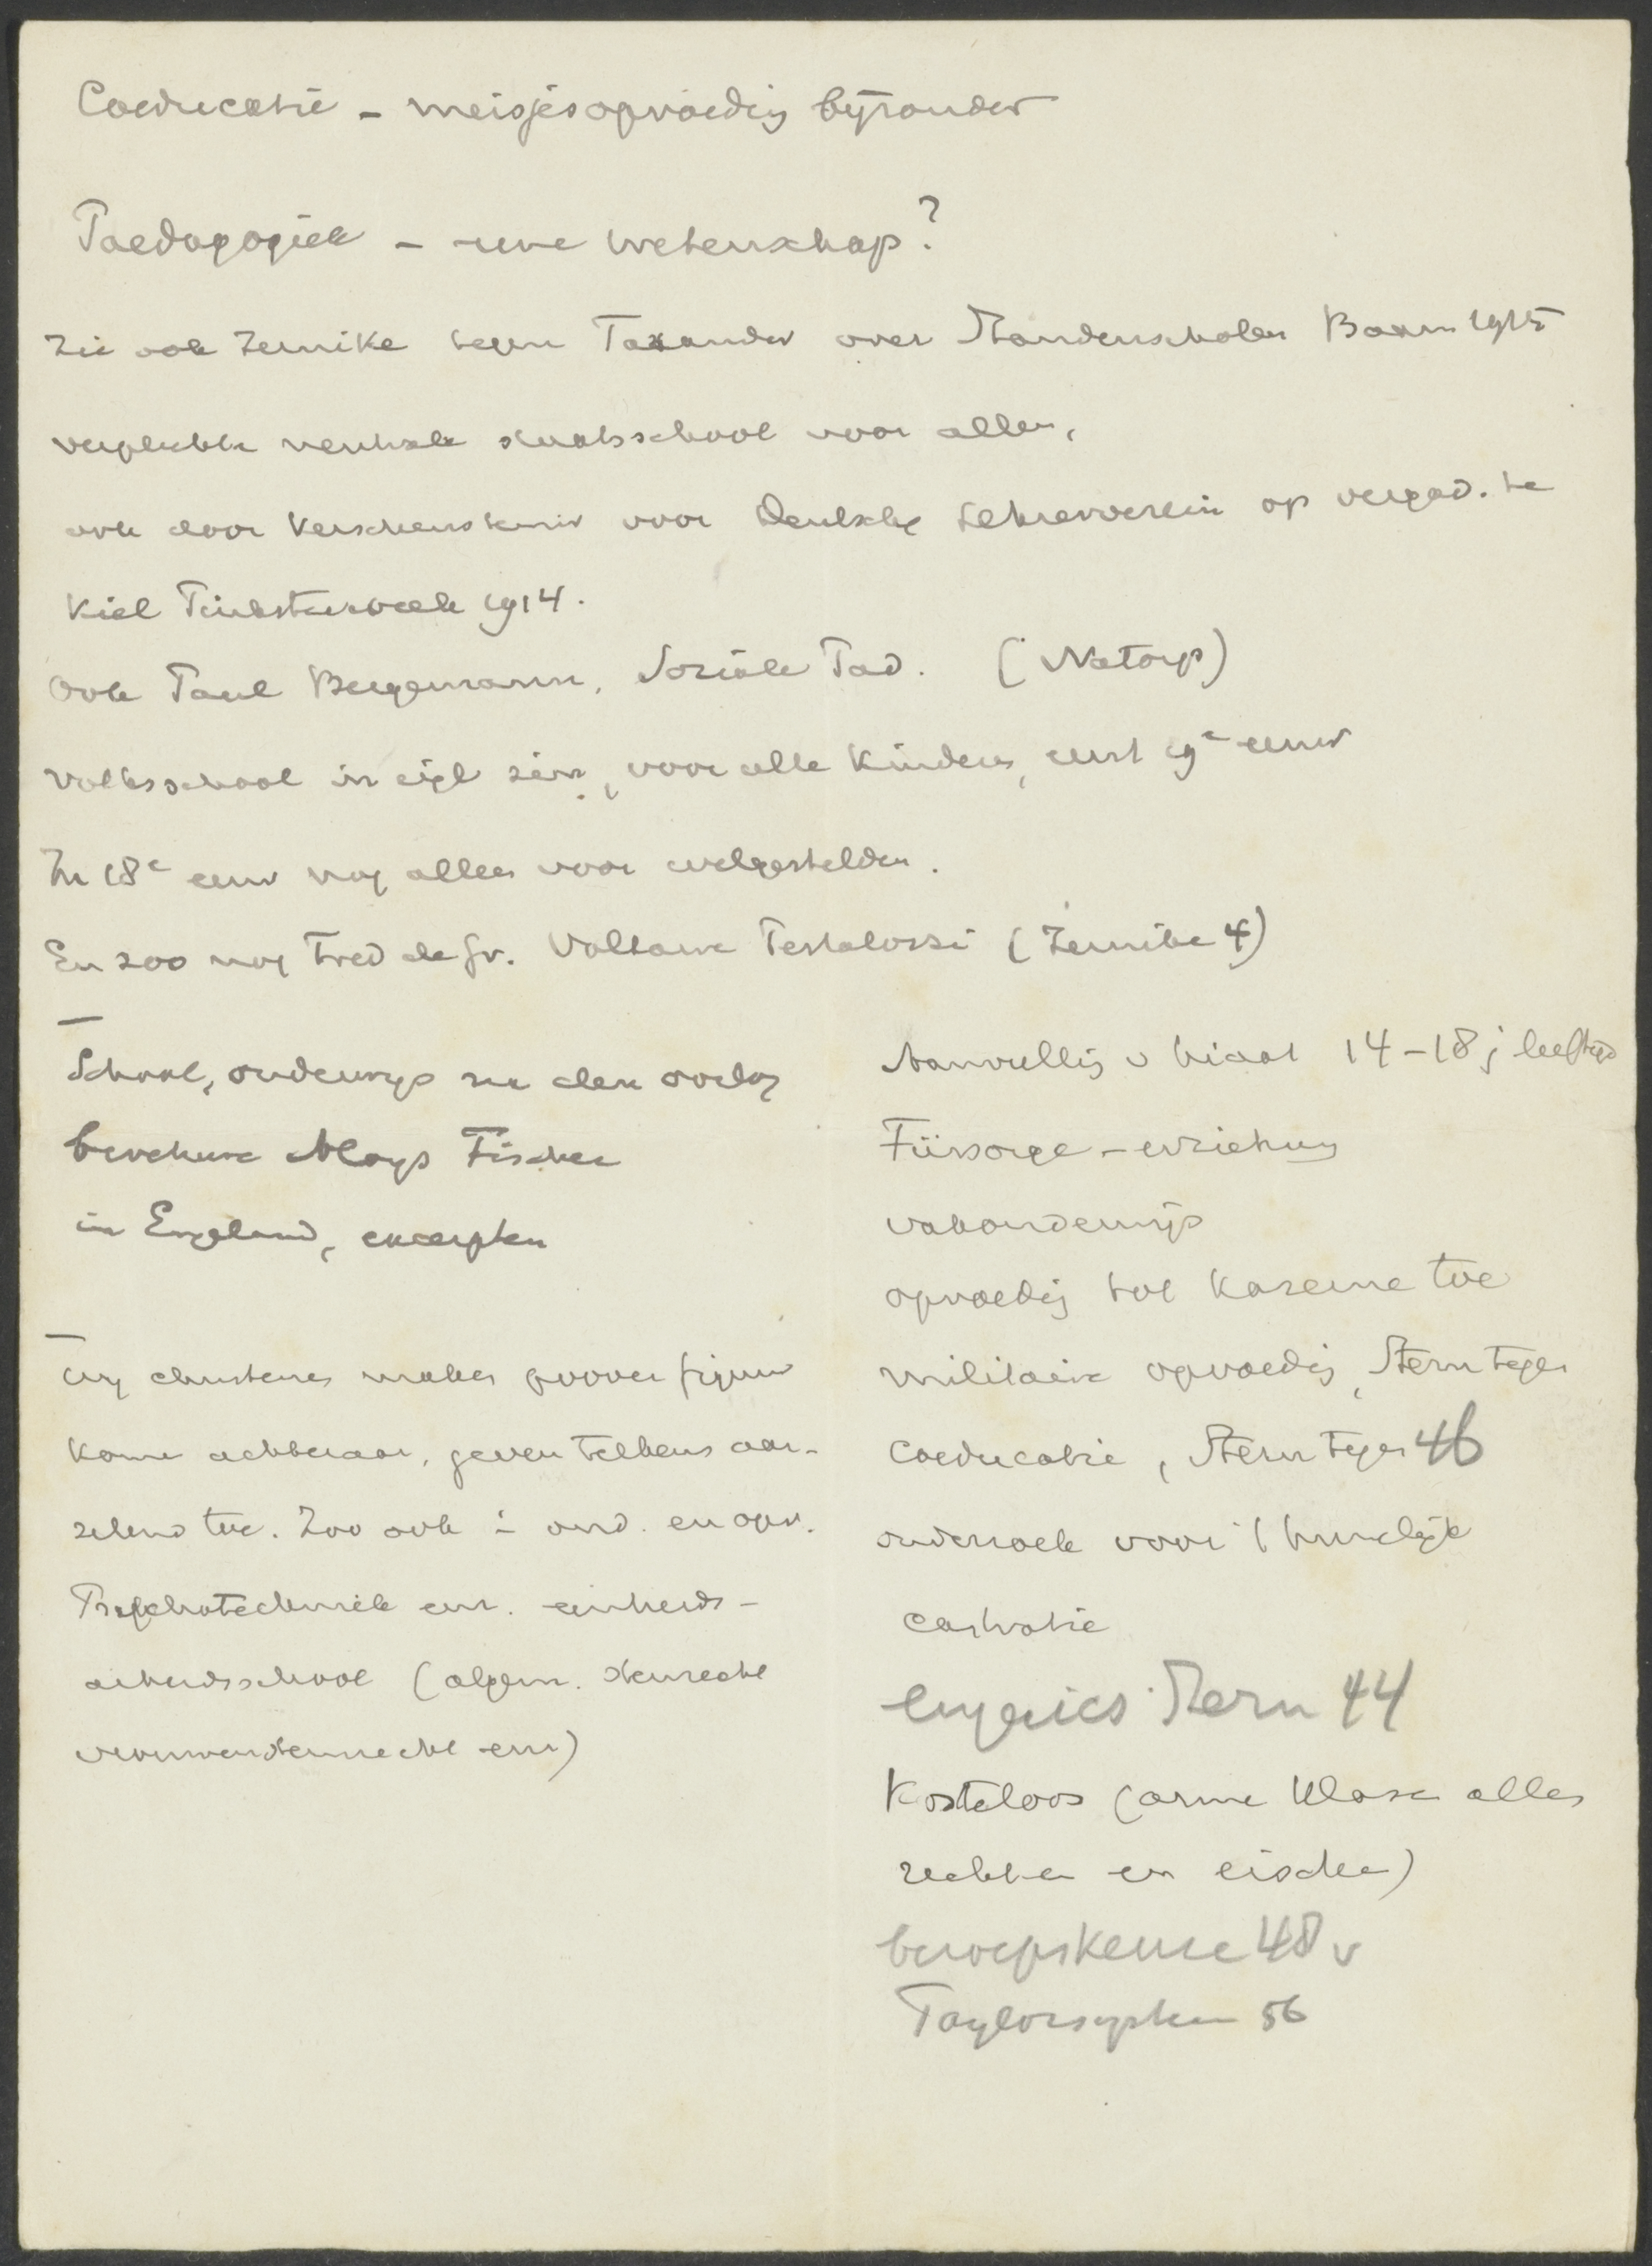 Coeducatie – meisjesopvoeding bijzonder
Paedagogiek – eene wetenschap?
Zie ook Zernike tegen Taxander over Standenscholen Baarn 1915
verplichte neutrale staatsschool voor allen,
ook door Kerschensteiner voor Deutsche Lehrerverein op vergad. te
Kiel Pinksterweek 1914.
Ook Paul Bergemann, Soziale Päd. (Natorp)
Volksschool in eigl zin, voor alle kinderen, eerst 19e eeuw
In 18e eeuw nog alleen voor welgestelden.
En zoo nog Fred de Gr. Voltaire Pestalozzi (Zernike 4)
School, onderwijs na den oorlog
brochure Aloys Fischer
in England, excerpten
Wij christenen maken poover figuur
komen achteraan, geven telkens aar-
zelend toe. Zoo ook in ond. en opv.
Psychotechniek enz. eenheids-
arbeidsschool (algem. stemrecht
vrouwenstemrecht enz)
Aanvulling v hiaat 14–18 j leeftijd
Fürsorge-erziehung
vakonderwijs
opvoeding tot kazerne toe
militaire opvoeding, Stern tegen
Coeducatie, Stern tegen 46
onderzoek voor 't huwelijk
castratie
eugenics Stern 44
Kosteloos (arme klasse alles
rechten en eischen)
beroepskeuze 48 v
Taylorsysteem 56